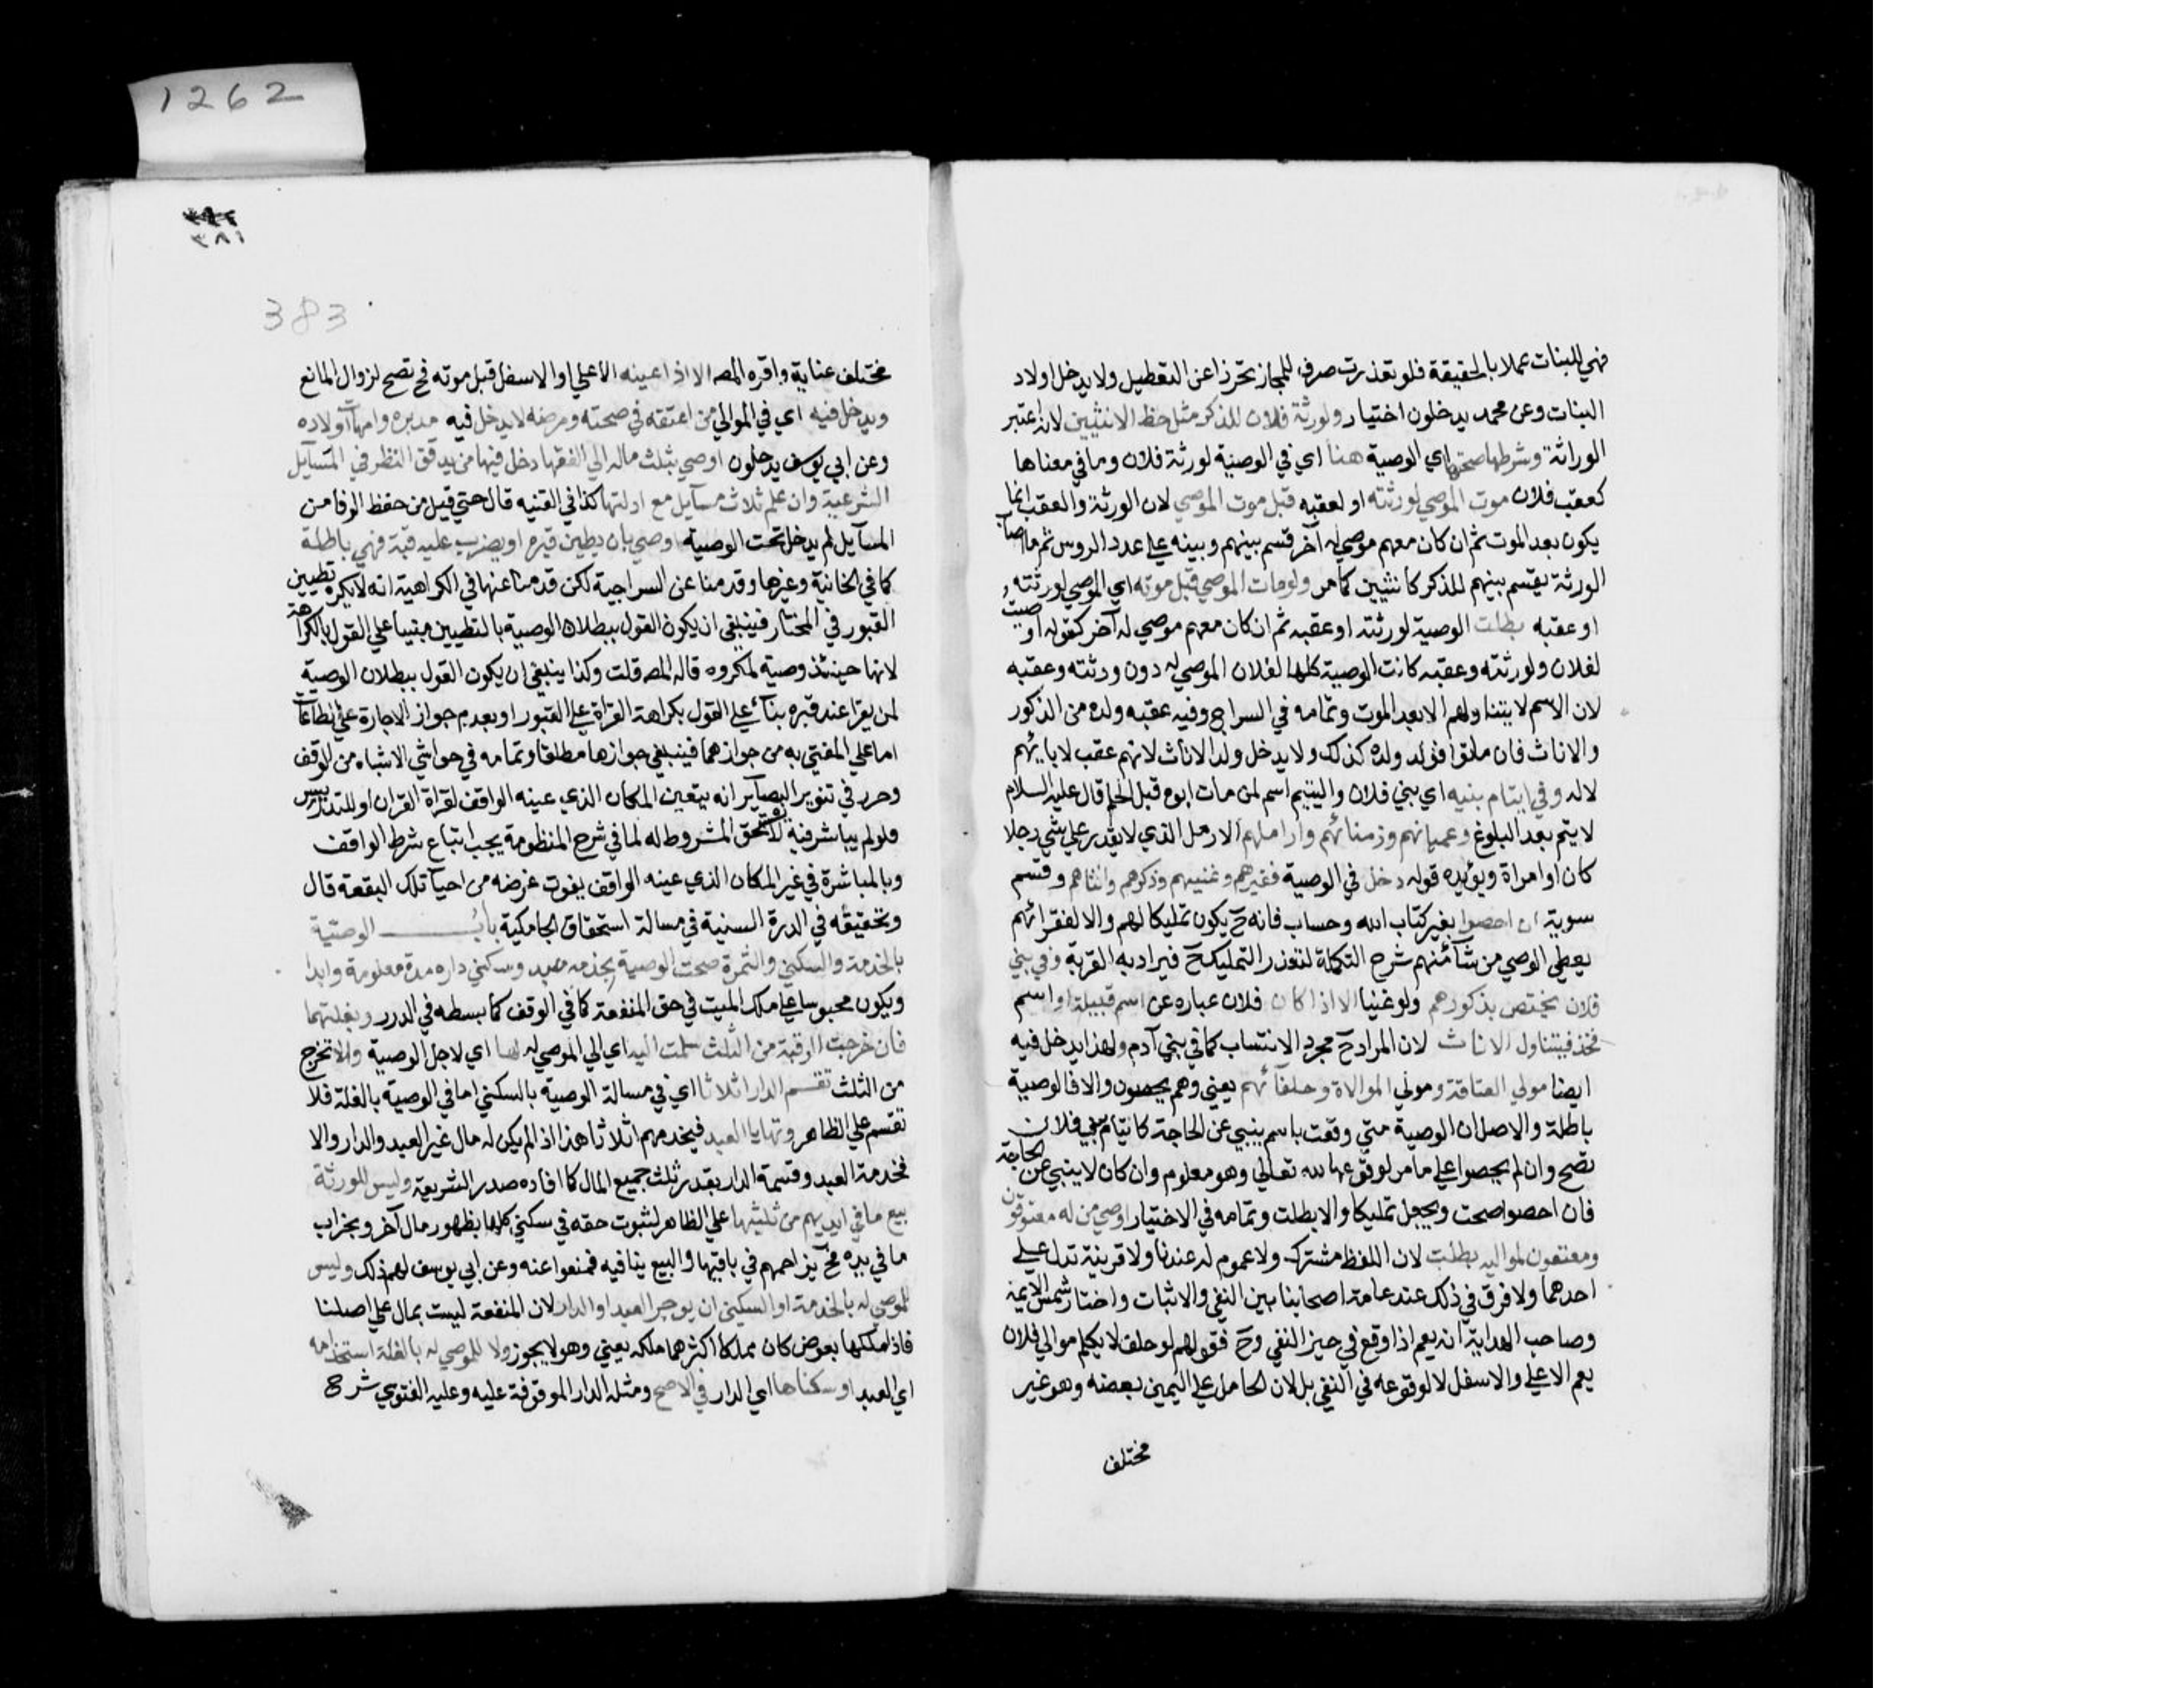 فهي للبنات عملا بالحقيقة فلو تعذرت صرف للمجاز تحرزا عن التعطيل ولا يدخل اولاد
البنات وعن محمد يدخلون اختيار ولورثة فلان للذكر مثل حظ الانثيين لانه اعتبر
الوراثة وشرطها صحتها اي الوصية هنا اي في الوصية لورثة فلان وما في معناها
كعقب فلان موت الموصي لورثته او لعقبه قبل موت الموصي لان الورثة والعقب انما
يكون بعد الموت ثم ان كان معهم موصي له آخر قسم بينهم وبينه علي عدد الروس ثم ما اصاب
الورثة يقسم بينهم للذكر كانثيين كما مر ولو مات الموصي قبل موته اي الموصي لورثته
او عقبه بطلت الوصية لورثته او عقبه ثم ان كان معهم موصي له آخر كقوله اوصيت
لفلان ولورثته وعقبه كانت الوصية كلها لفلان الموصي له دون ورثته وعقبه
لان الاسم لا يتناولهم الا بعد الموت وتمامه في السراج وفيه عقبه ولده من الذكور
والاناث فان ماتوا فولد ولده كذلك ولا يدخل ولد الاناث لانهم عقب لابائهم
لا له وفي ايتام بنيه اي بني فلان واليتيم اسم لمن مات ابوه قبل الحلم قال عليه السلام
لا يتم بعد البلوغ وعميانهم وزمنائهم واراملهم الارمل الذي لا يقدر علي شي رجلا
كان او امراة ويؤيده قوله دخل في الوصية فقيرهم وغنيهم وذكرهم وانثاهم وقسم
سوية ان احصوا بغير كتاب الله وحساب فانه ح يكون تمليكا لهم والا لفقرائهم
يعطي الوصي من شاء منهم شرح التكملة لتعذر التمليك ح فيراد به القربة وفي بني
فلان يختص بذكورهم ولو غنيا الا اذا كان فلان عباره عن اسم قبيلة او اسم
فخذ فيتناول الاناث لان المراد ح مجرد الانتساب كما في بني آدم ولهذا يدخل فيه
ايضا مولي العتاقة ومولي الموالاة وحلفائهم يعني وهم يحصون والا فالوصية
باطلة والاصل ان الوصية متي وقعت باسم ينبي عن الحاجة كايتام بني فلان
تصح وان لم يحصوا علي ما مر لوقوعها لله تعالي وهو معلوم وان كان لا ينبي عن الحاجة
فان احصوا صحت ويجعل تمليكا والا بطلت وتمامه في الاختيار اوصي من له معتوقون
ومعتقون لمواليه بطلت لان اللفظ مشترك ولا عموم له عندنا ولا قرينة تدل علي
احدهما ولا فرق في ذلك عند عامة اصحابنا بين النفي والاثبات واختار شمس الايمة
وصاحب الهداية انه يعم اذا وقع في حيز النفي وح فقولهم لو حلف لا يكلم موالي فلان
يعم الاعلي والاسفل لا لوقوعه في النفي بل لان الحامل علي اليمين بعضه وهو غير
مختلف
1262
٣٨١
383
مختلف عناية واقره المصه الا اذا عينه الاعلي او الاسفل قبل موته فح تصح لزوال المانع
ويدخل فيه اي في الموالي من اعتقه في صحته ومرضه لا يدخل فيه مدبره وامهات اولاده
وعن ابي يوسف يدخلون اوصي بثلث ماله الي الفقها دخل فيها من يدقق النظر في المسآيل
الشرعية وان علم ثلاث مسآيل مع ادلتها كذا في القنيه قال حتي قيل من حفظ الوفا من
المسآيل لم يدخل تحت الوصية اوصي بان يطين قبره او يضرب عليه قبة فهي باطلة
كما في الخانية وغيرها وقدمنا عن السراجية لكن قدمنا عنها في الكراهية انه لا يكره تطيين
القبور في المختار فينبغي ان يكون القول ببطلان الوصية بالتطيين مبنيا علي القول بالكراهة
لانها حينئذ وصية لمكروه قاله المصه قلت وكذا ينبغي ان يكون القول ببطلان الوصية
لمن يقرا عند قبره بنآء علي القول بكراهة القراة علي القبور او بعدم جواز الاجارة علي الطاعات
اما علي المفتي به من جوازهما فينبغي جوازها مطلقا وتمامه في حواشي الاشباه من الوقف
وحرر في تنوير البصآير انه يتعين المكان الذي عينه الواقف لقراة القران او للتدريس
فلو لم يباشر فيه لا يستحق المشروط له لما في شرح المنظومة يجب اتباع شرط الواقف
وبالمباشرة في غير المكان الذي عينه الواقف يفوت غرضه من احيآ تلك البقعة قال
وتحقيقه في الدرة السنية في مسالة استحقاق الجامكية باب الوصية
بالخدمة والسكني والثمرة صحت الوصية بخدمة عبده وسكني داره مدة معلومة وابدا
ويكون محبوسا علي ملك الميت في حق المنفعة كما في الوقف كما بسطه في الدرر وبغلتهما
فان خرجت الرقبة من الثلث سلمت اليه اي الي الموصي له لها اي لاجل الوصية والا تخرج
من الثلث تقسم الدار اثلاثا اي في مسالة الوصية بالسكني اما في الوصية بالغلة فلا
تقسم علي الظاهر وتهايا العبد فيخدمهم اثلاثا هذا اذا لم يكن له مال غير العبد والدار والا
فخدمة العبد وقسمة الدار بقدر ثلث جميع المال كما افاده صدر الشريعة وليس للورثة
بيع ما في ايديهم من ثلثيها علي الظاهر لثبوت حقه في سكني كلها بظهور مال آخر وبخراب
ما في يده فح يزاحمهم في باقيها والبيع ينافيه فمنعوا عنه وعن ابي يوسف لهم ذلك وليس
للموصي له بالخدمة او السكني ان يوجر العبد او الدار لان المنفعة ليست بمال علي اصلنا
فاذا ملكها بعوض كان مملكا اكثر هما ملكه يعني وهو لا يجوز ولا للموصي له بالغلة استخدامه
اي العبد او سكناها اي الدار في الاصح ومثله الدار الموقوفة عليه وعليه الفتوي شرح